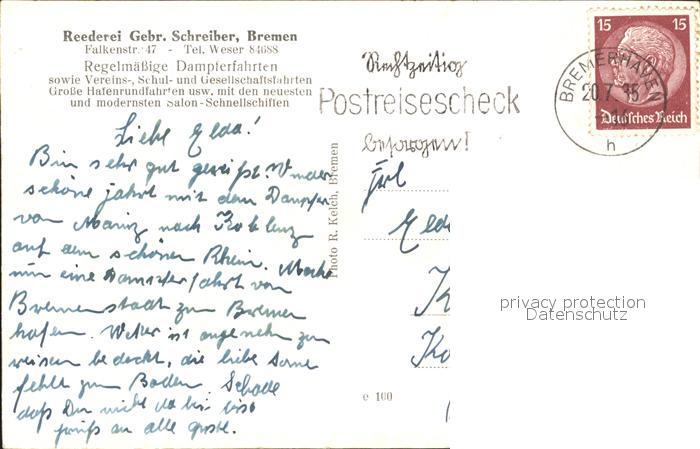 Reederei Gebr. Schreiber, Bremen
Falkenstr. 47 - Tel. Weser 84688
Regelmäßige Dampferfahrten
sowie Vereins-, Schul- und Gesellschaftsfahrten
Große Hafenrundfahrten usw. mit den neuesten
und modernsten Salon-Schnellschiffen
Liebe Elda!
Bin sehr gut gereist. Wunder
schöne Fahrt mit dem Dampfer
von Mainz nach Koblenz
auf dem schönen Rhein. Mache
nun eine Dampferfahrt von
Bremenstadt zum Bremer
hafen. Wetter ist angenehm zu
weisen bedeckt, die liebe Sonne
fehlt zum Baden. Schade
daß Du nicht da bist
Gruß an alle
Photo R. Kelch, Bremen
Rechtzeitig
Postreisescheck
besorgen!
BREMERHAVEN
20.7.
h
15 15
Deutsches Reich
Frl
Elda
K
Ko
e 100
privacy protection
Datenschutz